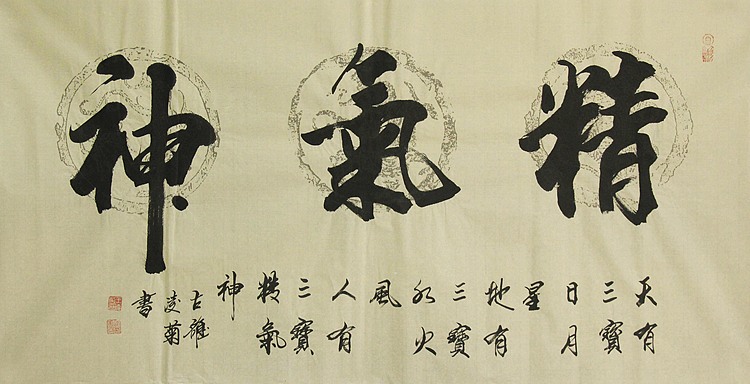 精氣神
天有
三寶
日月
星
地有
三寶
水火
風
人有
三寶
精氣
神
古
凌菊
書